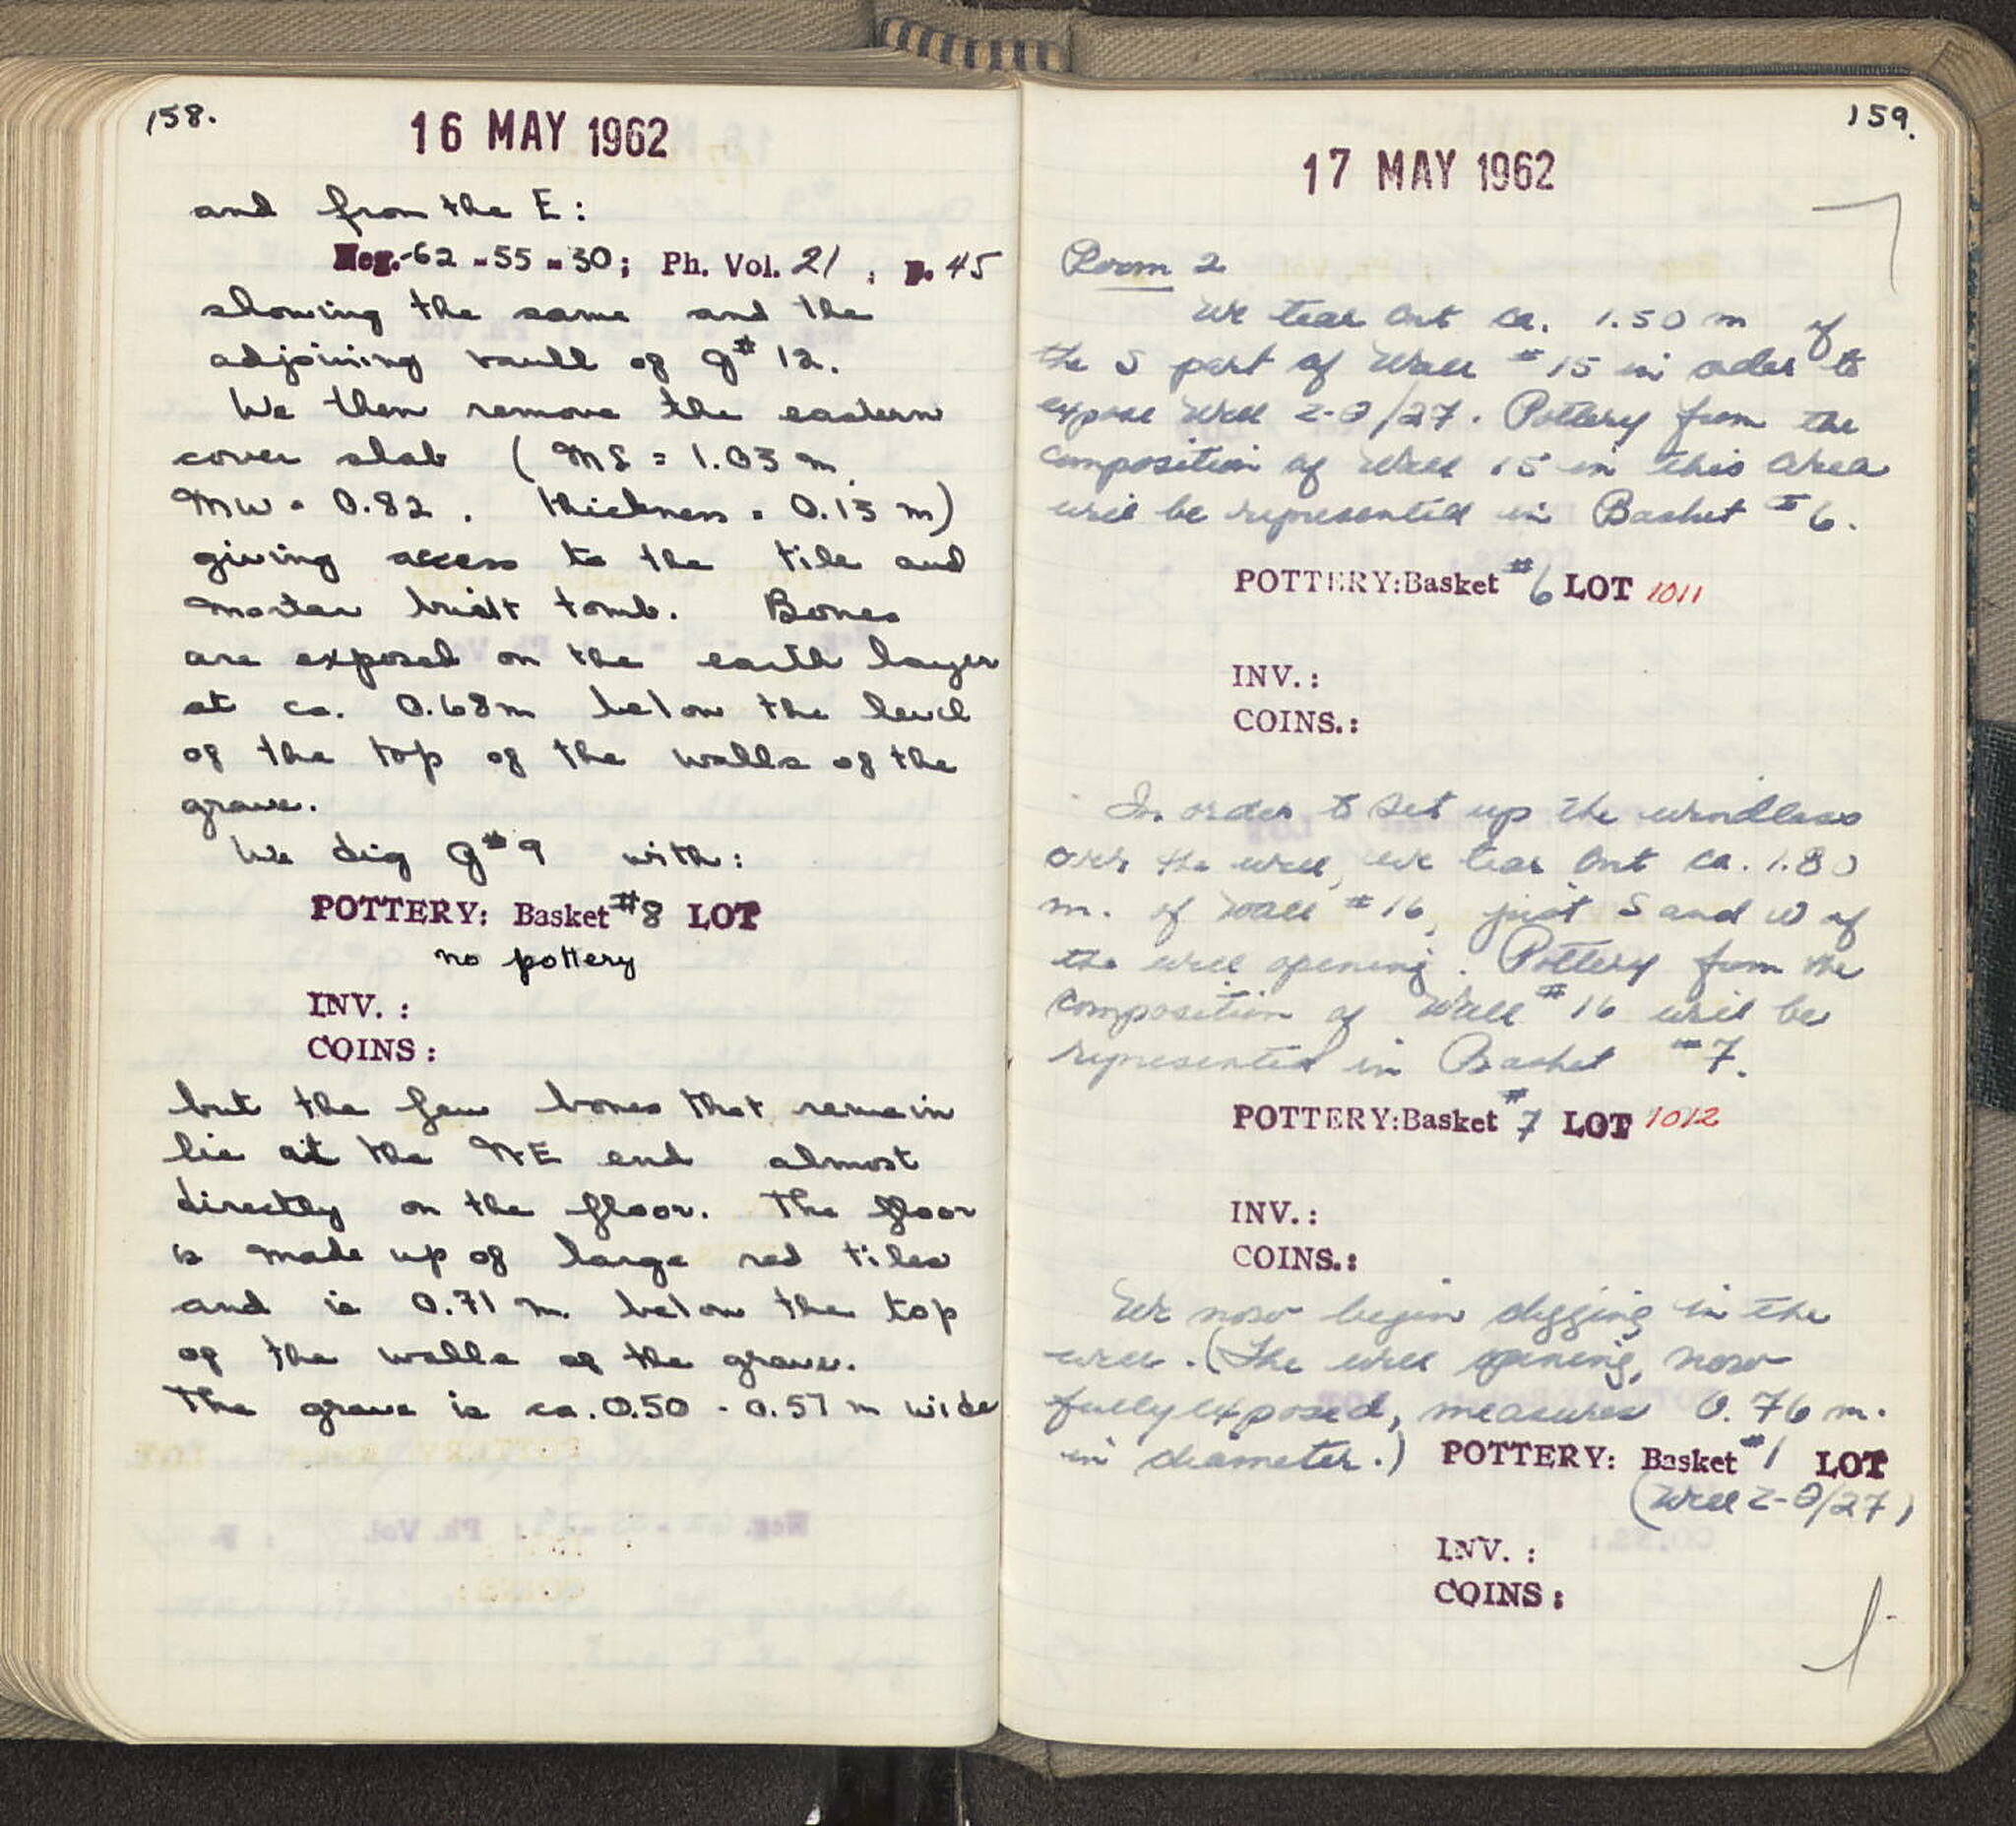 158.
16 MAY 1962
and from the E:
Neg.-62-55-30; Ph. Vol. 21, p. 45
showing the same and the
adjoining vault of g# 12.
We then remove the eastern
cover slab ( ML = 1.03 m
MW = 0.82. thickness = 0.15 m)
giving access to the tile and
mortar built tomb. Bones
are exposed on the earth layer
at ca. 0.68m below the level
of the top of the walls of the
grave.
We dig g#9 with:
POTTERY: Basket #8 LOT
no pottery
INV. :
COINS :
but the few bones that remain
lie at the NE end almost
directly on the floor. The floor
is made up of large red tiles
and is 0.71 m. below the top
of the walls of the grave.
The grave is ca. 0.50 - 0.57 m wide
159.
17 MAY 1962
Room 2
We tear out ca. 1.50 m of
the S part of Wall #15 in order to
expose Well Z-Θ/27. Pottery from the
composition of Wall 15 in this area
will be represented in Basket #6.
POTTERY:Basket #6 LOT 1011
INV.:
COINS.:
In order to set up the windlass
over the well, we tear out ca. 1.80
m. of wall #16, just S and W of
the well opening. Pottery from the
composition of Wall #16 will be
represented in Basket #7.
POTTERY:Basket #7 LOT 1012
INV.:
COINS.:
We now begin digging in the
well. (The well opening, now
fully exposed, measures 0.76 m.
in diameter.) POTTERY: Basket #1 LOT
(Well Z-Θ/27)
INV. :
COINS :